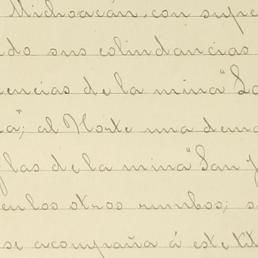 Michoacán, con supe
do sus colindancias
encias de la mina "
a"; al Norte una dem
las de la mina "San
en los otros rumbos; s
se acompaña á este tit